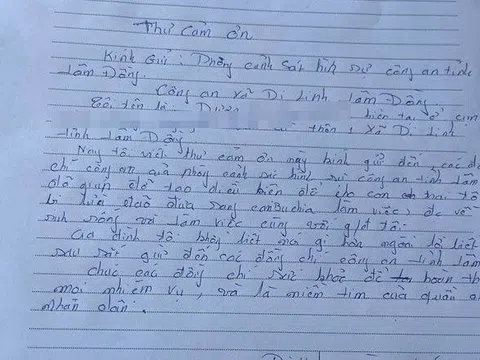 Thư cảm ơn
Kính Gửi: Phòng cảnh sát hình sự công an tỉnh
Lâm Đồng.
Công an xã Di Linh Lâm Đồng
Tôi tên là: Dương hiện tại ở cụm
thôn 1 xã Di Linh
tỉnh Lâm Đồng
Nay tôi viết thư cảm ơn này kính gửi đến, các đ
chí công an của phòng cảnh sát hình sự công an tỉnh Lâm
đã giúp đỡ tạo điều kiện để cho con trai tôi
bị lừa đảo đưa sang cambuchia làm việc, đc về
sinh sống và làm việc cùng với g/đ tôi.
Gia đình tôi không biết nói gì hơn ngoài lời biết
sâu sắc gửi đến các đồng chí công an tỉnh Lâm
chúc các đồng chí sức khoẻ để hoàn th
mọi nhiệm vụ, và là niềm tin của quần
nhân dân.